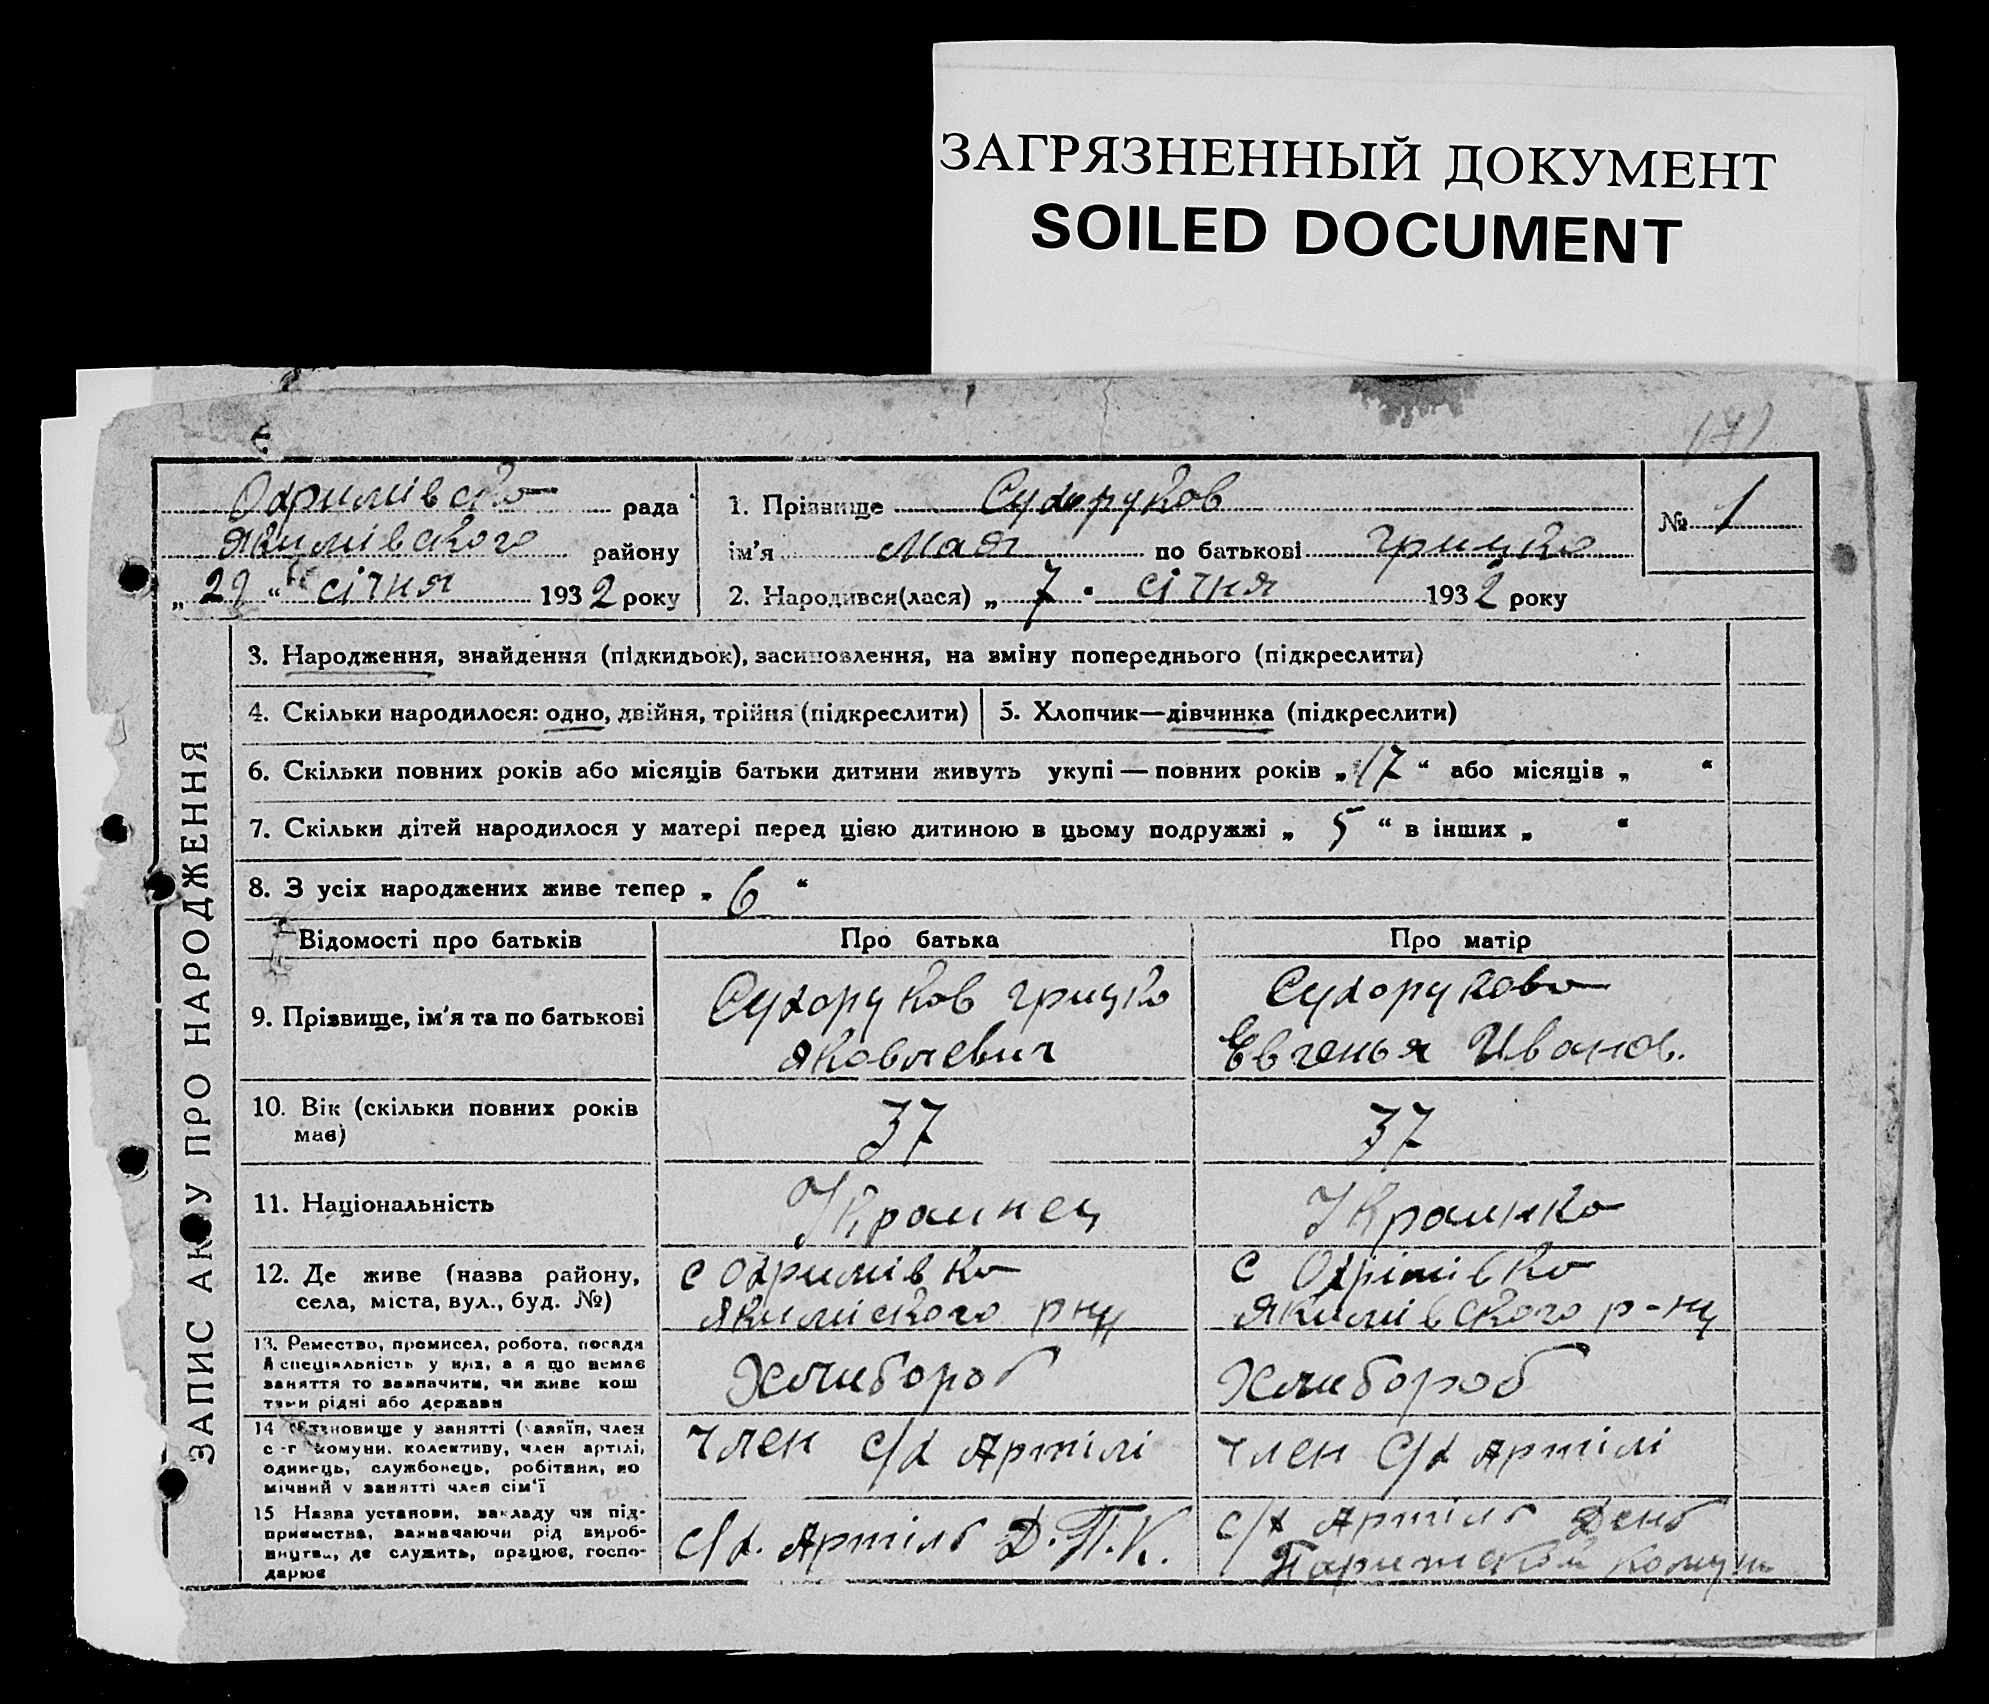 ЗАГРЯЗНЕННЫЙ ДОКУМЕНТ
SOILED DOCUMENT
171
Охримівска рада
Якимівского району
„ 29 “ січня 1932 року
1. Прізвище Сухоруков
ім'я по батькові Грицко
2. Народився(лася) „ 7 “ січня 1932 року
№ 1
ЗАПИС АКТУ ПРО НАРОДЖЕННЯ
3. Народження, знайдення (підкидьок), засиновлення, на зміну попереднього (підкреслити)
4. Скільки народилося: одно, двійня, трійня (підкреслити)
5. Хлопчик—дівчинка (підкреслити)
6. Скільки повних років або місяців батьки дитини живуть укупі — повних років „ 17 “ або місяців „ “
7. Скільки дітей народилося у матері перед цією дитиною в цьому подружжі „ 5 “ в інших „ “
8. З усіх народжених живе тепер „ 6 “
Відомості про батьків Про батька Про матір
9. Прізвище, ім'я та по батькові
Сухоруков Грицко
Яковлевич
Сухорукова
Евгенья Иванов.
10. Вік (скільки повних років
має)
37
37
11. Національність
Украинец
Украинка
12. Де живе (назва району,
села, міста, вул., буд. №)
с Охримівка
Якиміского рну
с Охрімівка
Якимівского р-ну
13. Ремество, промисел, робота, посада
й спеціяльність у них, а я що немає
заняття то зазначити, чи живе кош
тами рідні або держави
Хлибороб
Хлибороб
14 Становище у занятті (хазяїн, член
с-г комуни, колективу, член артілі,
одинець, службовець, робітник, по
мічний у занятті член сім'ї
член с/х Артілі
член с/х Артілі
15 Назва установи, закладу чи під-
приємства, зазначаючи рід вироб-
ництва, де служить, працює, госпо-
дарює
с/х. Артіль Д.П.К.
с/х Артіль День
Парижской Комуни